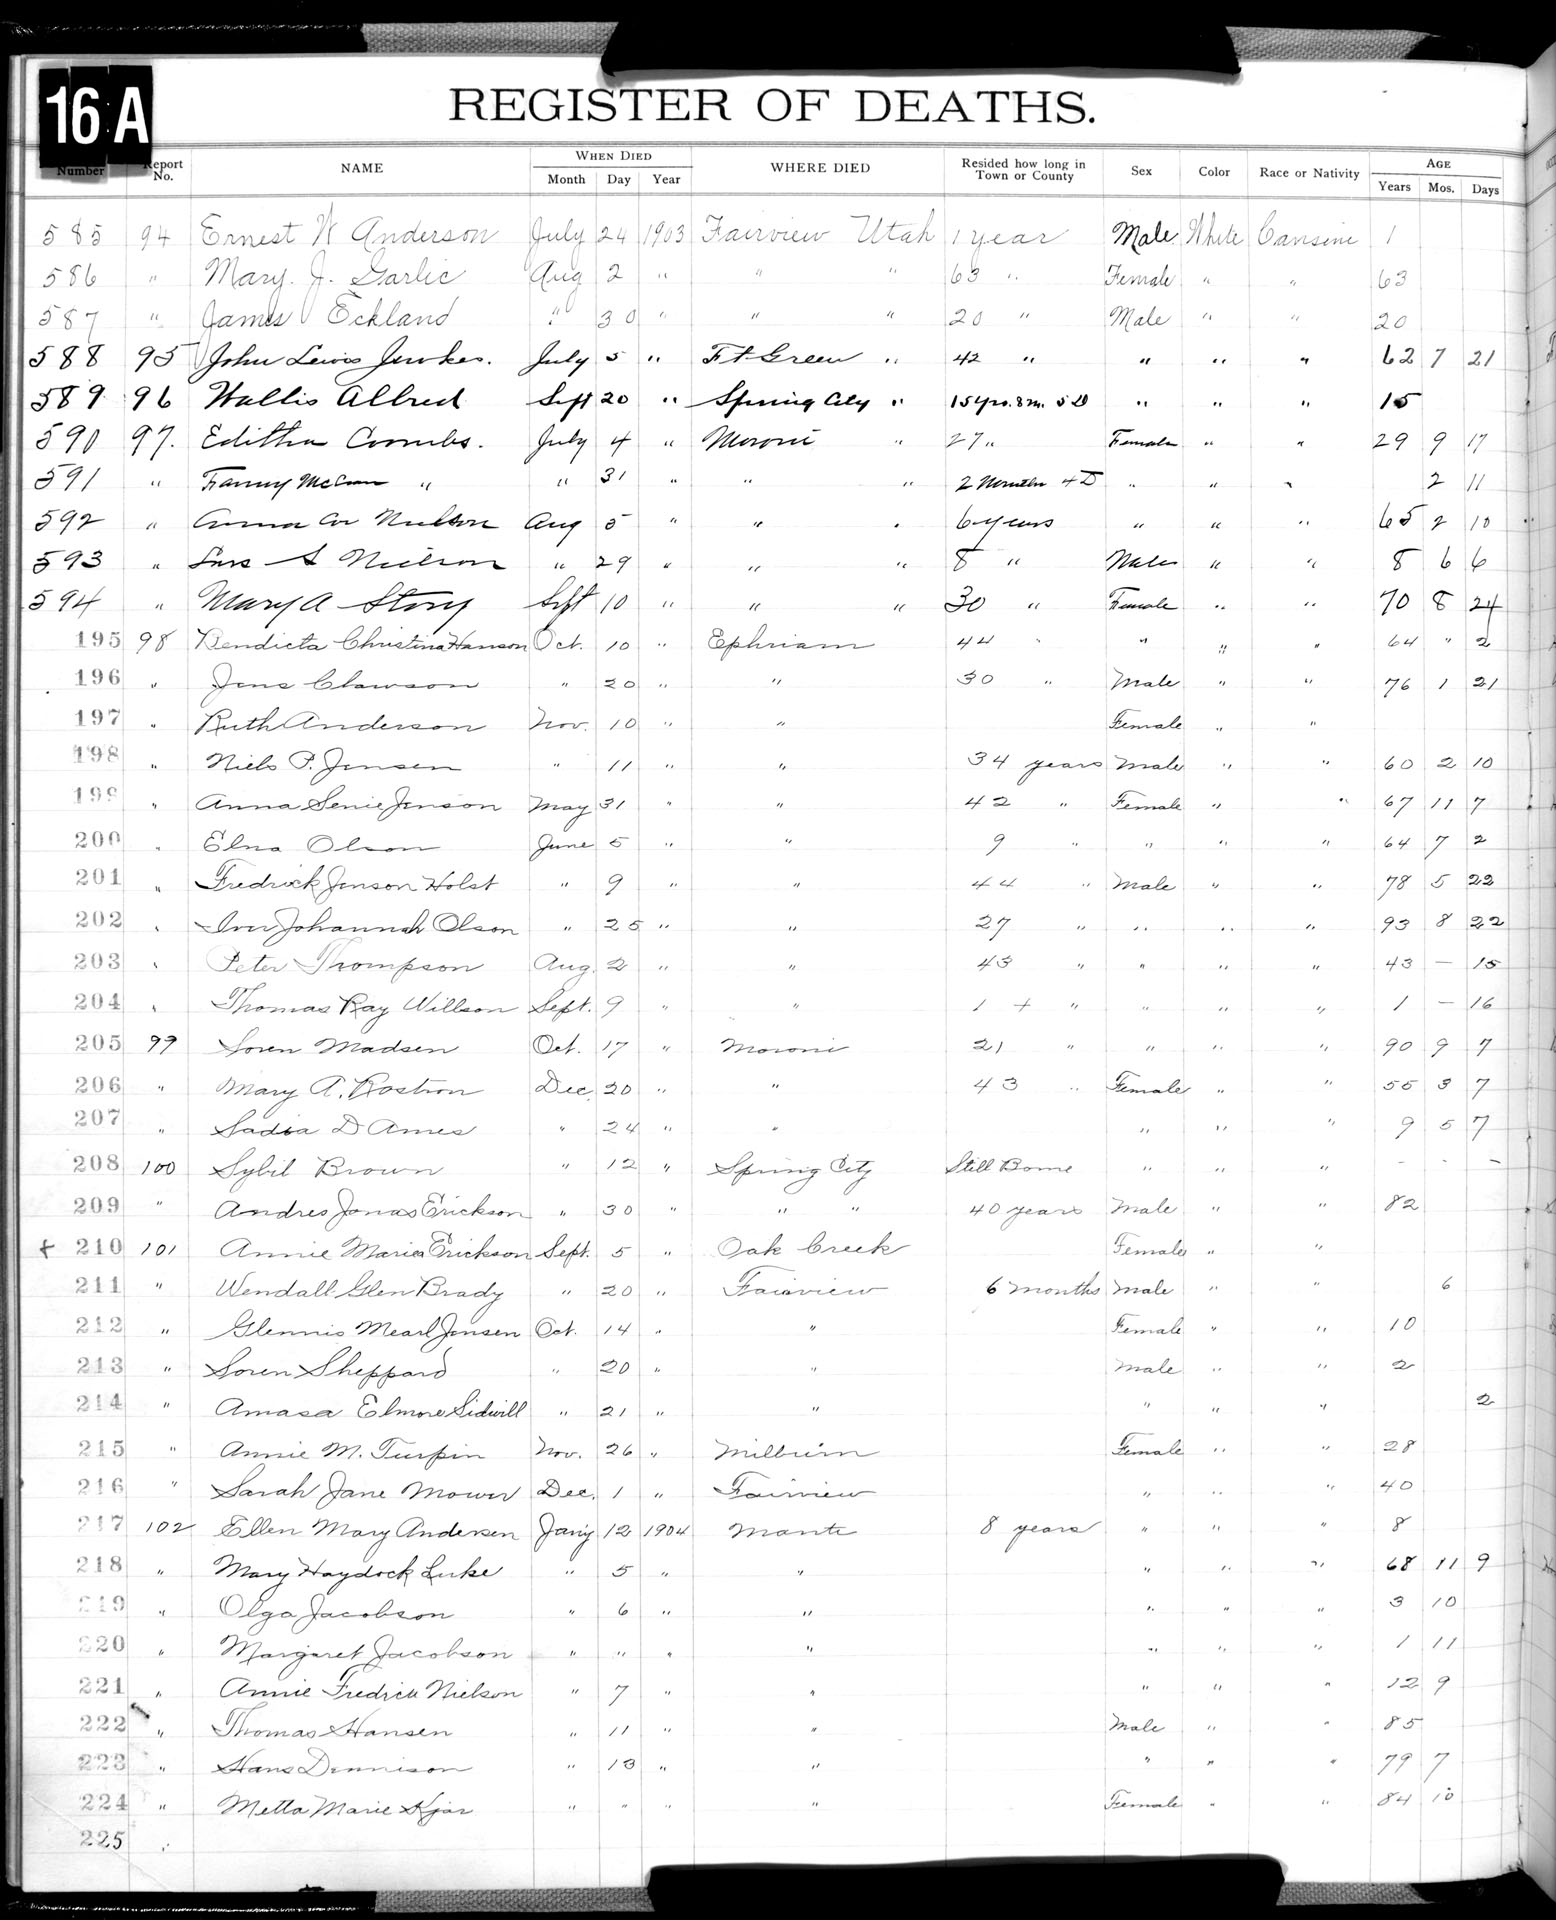 16 A
REGISTER OF DEATHS.
Number Report No. NAME WHEN DIED Month Day Year WHERE DIED Resided how long in Town or County Sex Color Race or Nativity AGE Years Mos. Days
585 94 Ernest W Anderson July 24 1903 Fairview Utah 1 year Male White Cansine 1
586 " Mary. J. Garlic Aug 2 " " " 63 " Female " " 63
587 " James Eckland " 30 " " " 20 " Male " " 20
588 95 John Lewis Jewkes. July 5 " Ft Green " 42 " " " " 62 7 21
589 96 Wallis Allred Sept 20 " Spring City " 15 yrs. 8 m. 5 D " " " 15
590 97. Editha Coombs. July 4 " Moroni " 27 " Female " " 29 9 17
591 " Fanny " " 31 " " " 2 Months 4 D " " " 2 11
592 " Anna Nielson Aug 5 " " " 6 years " " " 65 2 10
593 " Lars S Nielson " 29 " " " 8 " Male " " 8 6 6
594 " Mary A Story Sept 10 " " " 30 " Female " " 70 8 24
195 98 Bendicta Christina Hanson Oct. 10 " Ephriam 44 " " " " 64 " 2
196 " Jens Clawson " 20 " " 30 " Male " " 76 1 21
197 " Ruth Anderson Nov. 10 " " Female " "
198 " Niels P. Jensen " 11 " " 34 years Male " " 60 2 10
199 " Anna Senie Jenson May 31 " " 42 " Female " " 67 11 7
200 " Elna Olson June 5 " " 9 " " " " 64 7 2
201 " Fredrick Jenson Holst " 9 " " 44 " Male " " 78 5 22
202 " Iver Johannah Olson " 25 " " 27 " " " " 93 8 22
203 " Peter Thompson Aug. 2 " " 43 " " " " 43 — 15
204 " Thomas Ray Willson Sept. 9 " " 1 + " " " " 1 — 16
205 99 Soren Madsen Oct. 17 " Moroni 21 " " " " 90 9 7
206 " Mary A. Rostron Dec. 20 " " 43 " Female " " 55 3 7
207 " Sadia D Ames " 24 " " " " " 9 5 7
208 100 Sybil Brown " 12 " Spring City Still Borne " " " - - -
209 " Andres Jonas Erickson " 30 " " " 40 years Male " " 82
+ 210 101 Annie Maria Erickson Sept. 5 " Oak Creek Female " "
211 " Wendall Glen Brady " 20 " Fairview 6 months Male " " 6
212 " Glennis Mearl Jensen Oct. 14 " " Female " " 10
213 " Soren Sheppard " 20 " " Male " " 2
214 " Amasa Elmore Sidwill " 21 " " " " " 2
215 " Annie M. Turpin Nov. 26 " Milburn Female " " 28
216 " Sarah Jane Mower Dec. 1 " Fairview " " " 40
217 102 Ellen Mary Andersen Jany 12 1904 Manti 8 years " " " 8
218 " Mary Haydock Luke " 5 " " " " " 68 11 9
219 " Olga Jacobson " 6 " " " " " 3 10
220 " Margaret Jacobson " " " " " " " 1 11
221 " Annie Fredrica Nielson " 7 " " " " " 12 9
222 " Thomas Hansen " 11 " " Male " " 85
223 " Hans Dennison " 13 " " " " " 79 7
224 " Metta Marie Kjar " " " " Female " " 84 10
225 "